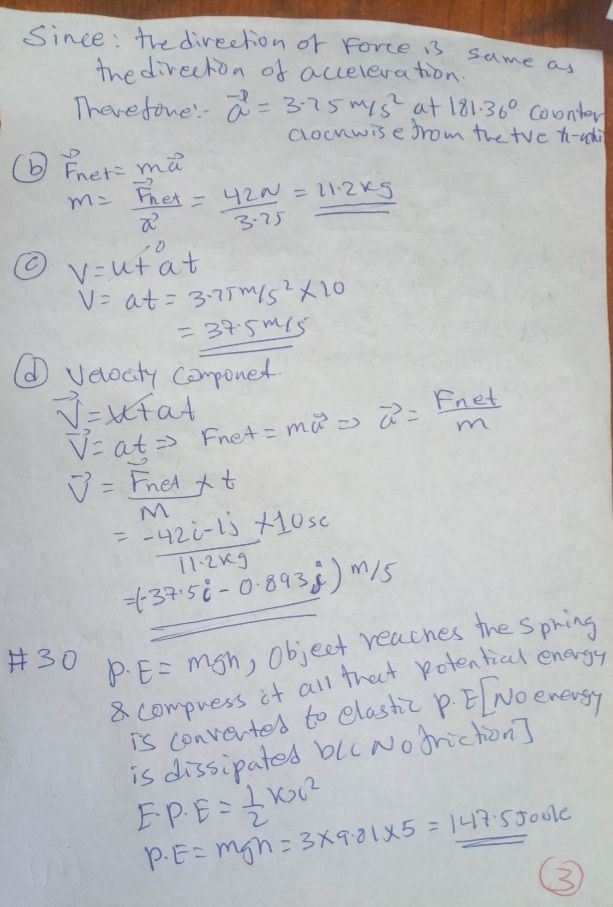 Since: the direction of Force is same as
the direction of acceleration.
Therefore:- a⃗ = 3.75 m/s² at 181.36° counter
clocnwise from the tve x-axi
(b) F⃗net = ma⃗
m = F⃗net/a⃗ = 42N/3.75 = 11.2kg
(c) V = u + at
0
V = at = 3.75m/s² × 10
= 37.5 m/s
(d) Velocity Componet.
V⃗ = u + at
V⃗ = at ⇒ Fnet = ma⃗ ⇒ a⃗ = Fnet/m
V⃗ = F⃗net/M × t
= -42i-1j/11.2kg × 10sc
=(-37.5i - 0.893j) m/s
#30 P.E = mgh, Object reaches the spring
& compress it all that potential energy
is converted to elastic P.E [No energy
is dissipated b/c No friction]
E.P.E = 1/2 kx²
P.E = mgh = 3×9.81×5 = 147.5 Joule
3